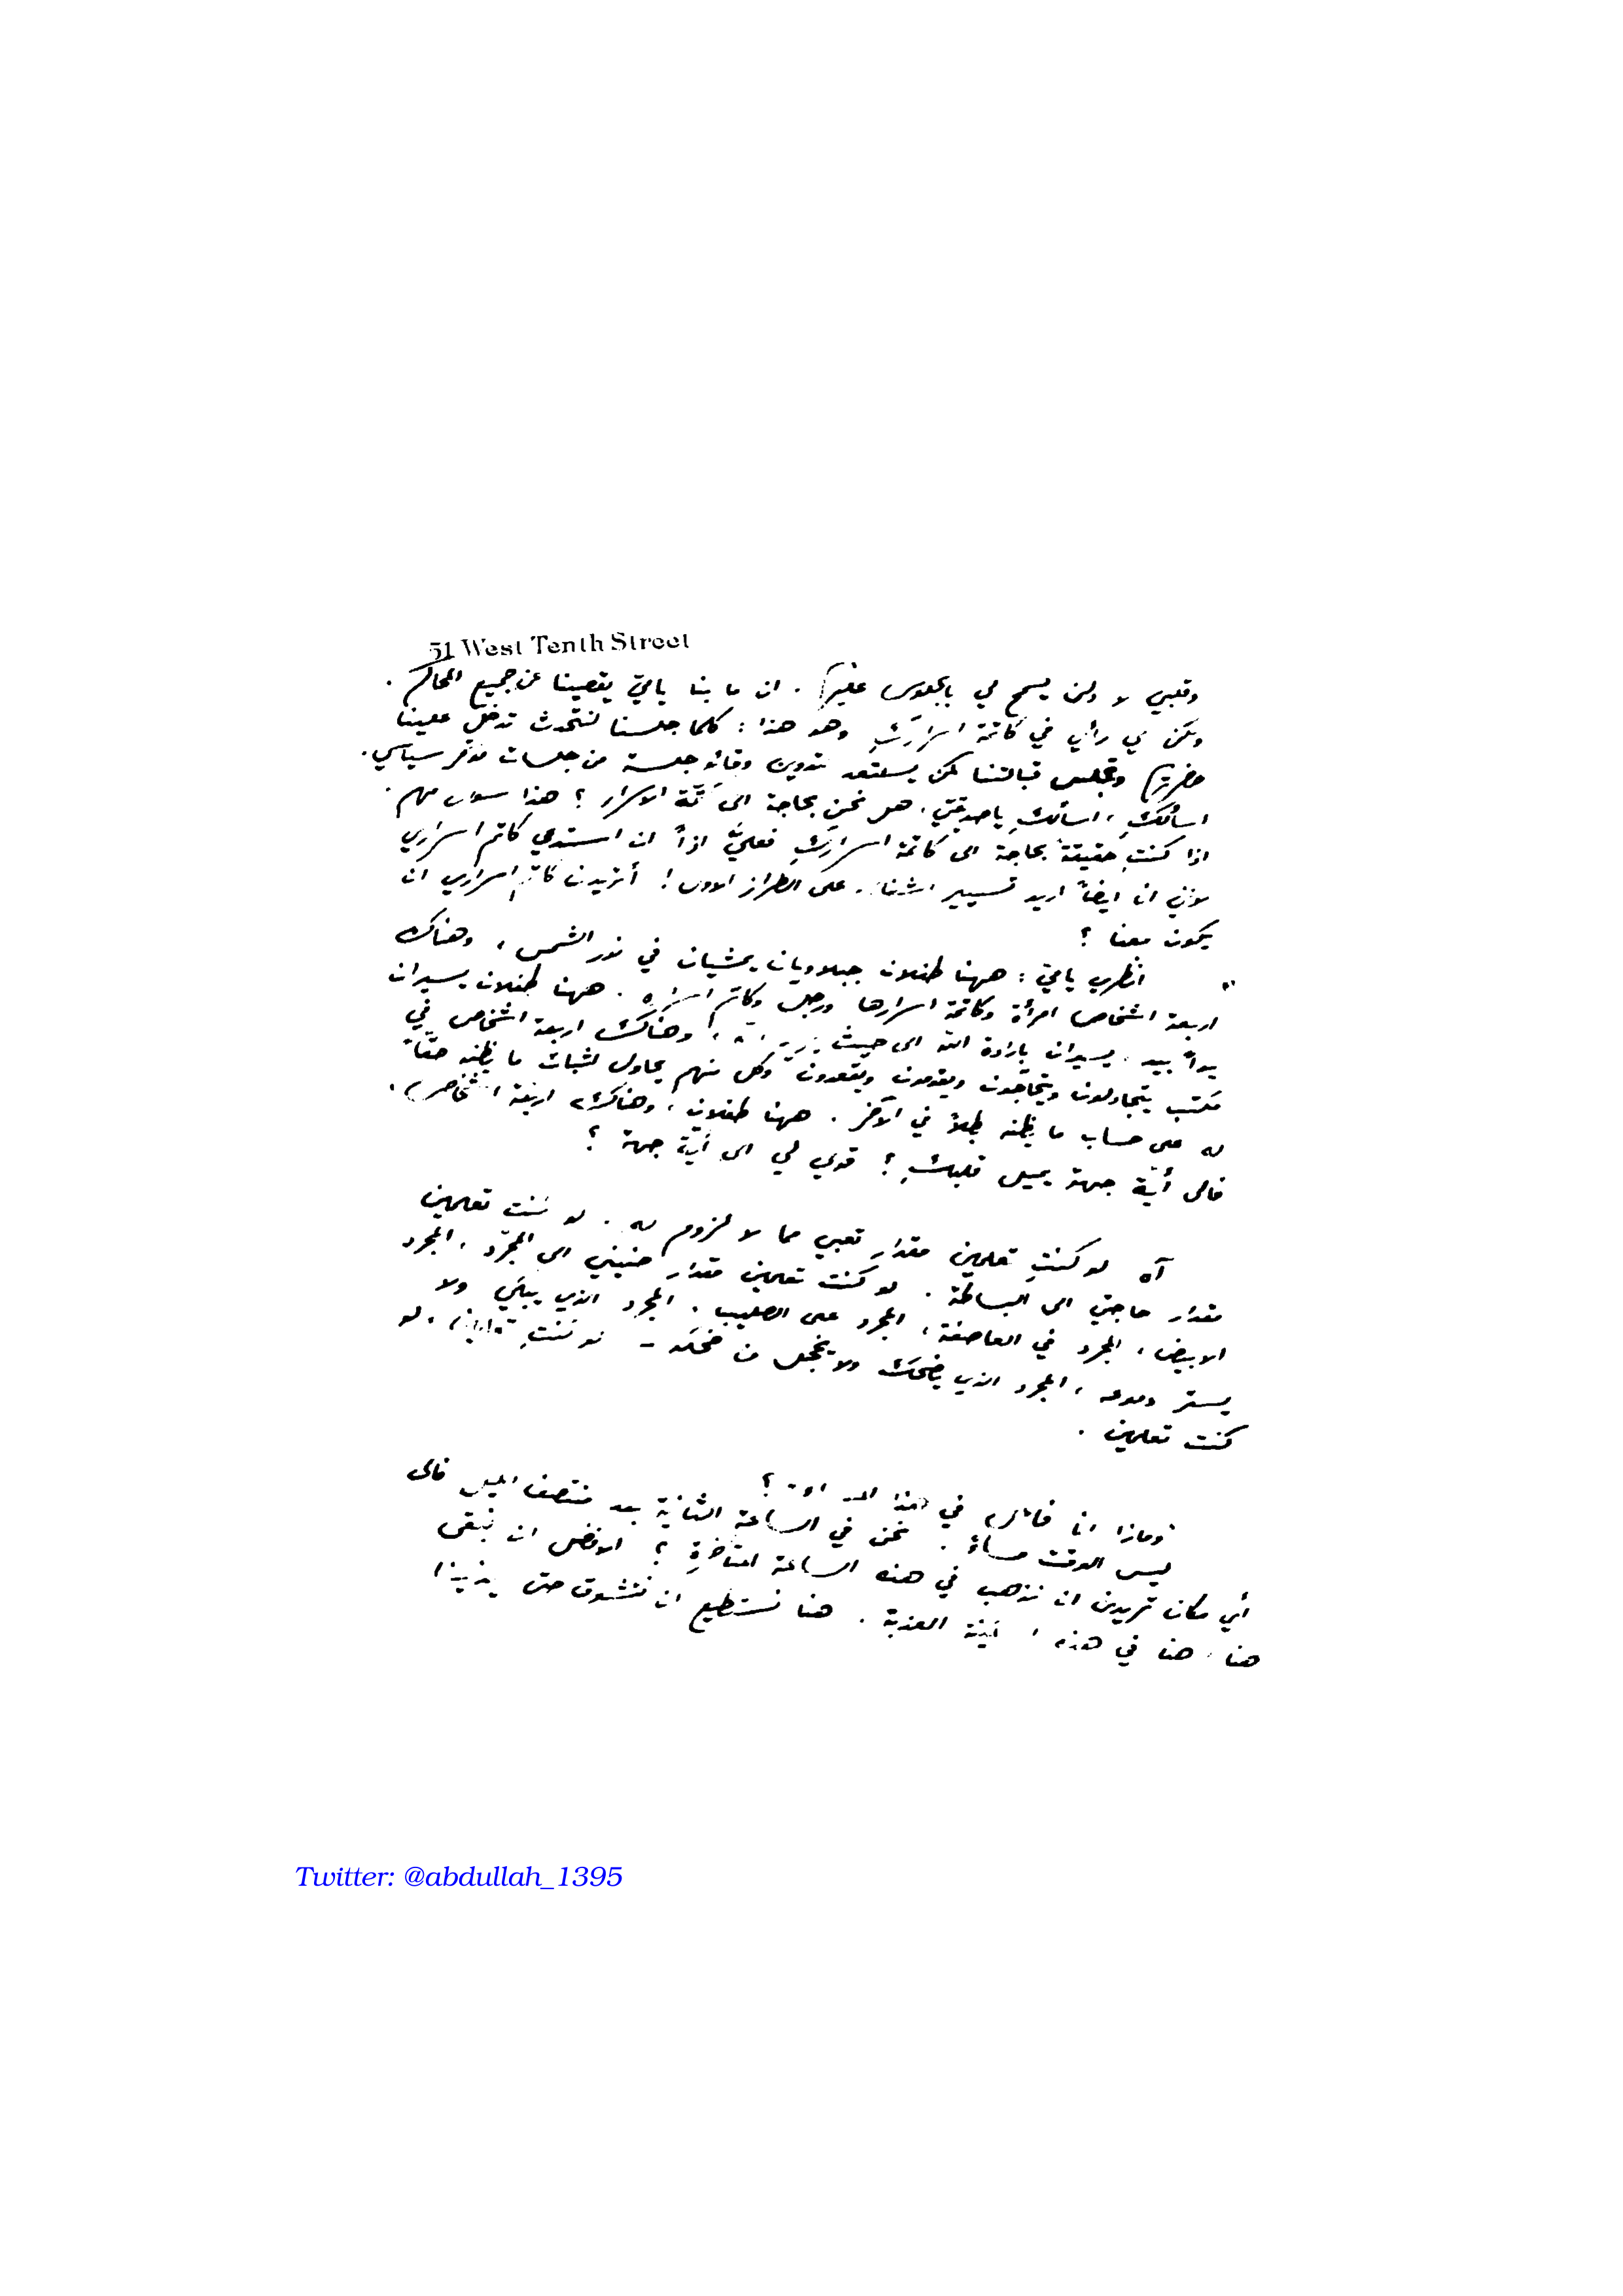 51 West Tenth Street
وقلبي لا ولن يسمح لي بالجلوس عليها. ان ما بنا يا ميّ يقصينا عن جميع المحاكم.
ولكن لي رأي في كاتمة اسراركِ وهو هذا: كلما جلسنا لنتحدث تدخل علينا
حضرتها وتجلس قبالتنا كمن يستعد لتدوين وقائع جلسة من جلسات مؤتمر سياسي.
اسألكِ، اسألكِ يا صديقتي، هل نحن بحاجة الى كاتمة الاسرار؟ هذا سؤال مهم.
اذا كنتِ حقيقةً بحاجة الى كاتمة اسراركِ فعليَّ اذاً ان استدعي كاتم اسراري
لأني انا ايضاً اريد تسيير على الطراز الاول! أتريدين كاتم اسراري ان
يكون معنا؟
انظري يا ميّ: ههنا طفلان جبلاويان يمشيان في نور الشمس، وهناك
اربعة اشخاص امرأة وكاتمة اسرارها ورجل وكاتم اسراره. ههنا طفلان يسيران
يداً بيد، يسيران بارادة الله الى حيث وهناك اربعة اشخاص في
مكتب يتجادلون ويتحاجّون ويقومون ويقعدون وكل منهم يحاول اثبات ما يظنه حقاً
له على حساب ما يظنه بطلاً في الآخر. ههنا طفلان، وهناك اربعة اشخاص،
فالى أيّة جهة يميل قلبكِ؟ قولي لي الى أيّة جهة؟
آه لو كنتِ تعلمين مقدار تعبي مما لا لزوم له. لو كنت تعلمين
مقدار حاجتي الى البساطة. لو كنت تعلمين مقدار حنيني الى المجرّد، المجرد
الابيض، المجرد في العاصفة، المجرد على الصليب، المجرد الذي يبكي ولا
يستر دموعه، المجرد الذي يضحك ولا يخجل من ضحكه - لو كنتِ تعلمين، لو
كنت تعلمين.
وماذا انا فاعل في هذا المساء؟
ليس الوقت مساءً. نحن في الساعة الثانية بعد منتصف الليل فالى
أي مكان تريدين ان نذهب في هذه الساعة المتأخرة؟ الافضل ان نبقى
هنا، هنا في هذه السكينة العذبة. هنا نستطيع ان نتشوق حتى يدنينا
Twitter: @abdullah_1395